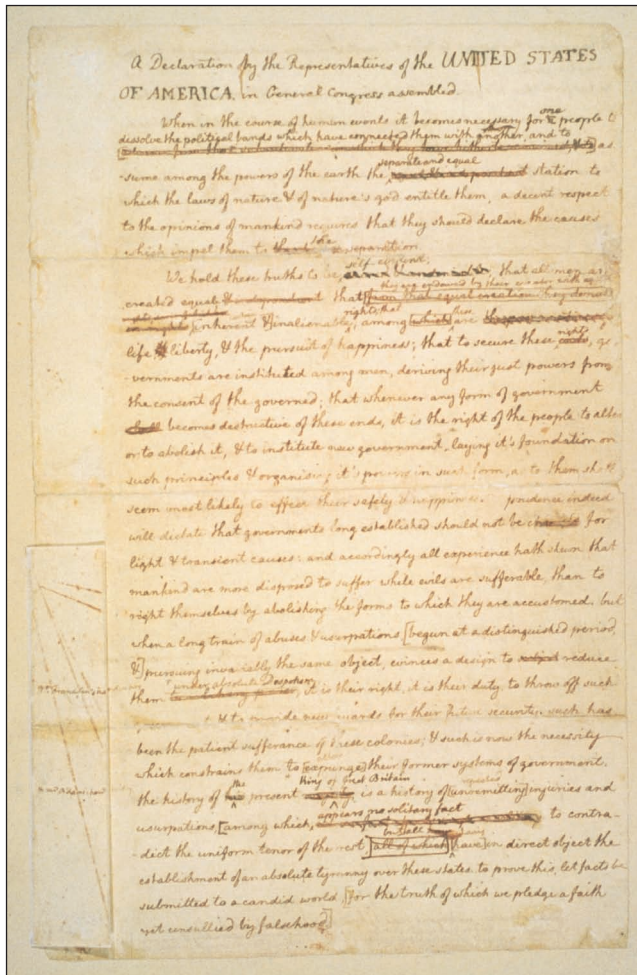 A Declaration by the Representatives of the UNITED STATES
OF AMERICA, in General Congress assembled.
When in the course of human events it becomes necessary for one people to
dissolve the political bands which have connected them with another, and to
as
separate and equal
-sume among the powers of the earth the station to
which the laws of nature & of nature's god entitle them, a decent respect
to the opinions of mankind requires that they should declare the causes
which impel them to the separation.
self-evident,
We hold these truths to be that all men are
they are endowed by their creator
created equal that [from that equal creation they derive
rights, that these
inherent & inalienable, among [which] are
rights
life, & liberty, & the pursuit of happiness; that to secure these go
-vernments are instituted among men, deriving their just powers from
the consent of the governed; that whenever any form of government
becomes destructive of these ends, it is the right of the people to alter
or to abolish it, & to institute new government, laying it's foundation on
such principles & organising it's powers in such form, as to them shall
seem most likely to effect their safety & happiness. prudence indeed
will dictate that governments long established should not be for
light & transient causes: and accordingly all experience hath shewn that
mankind are more disposed to suffer while evils are sufferable, than to
right themselves by abolishing the forms to which they are accustomed. but
when a long train of abuses & usurpations, [begun at a distinguished period,
&] pursuing invariably the same object, evinces a design to reduce
under absolute Despotism
them it is their right, it is their duty, to throw off such
& to provide new guards for their future security. such has
been the patient sufferance of these colonies; & such is now the necessity
which constrains them to [expunge] their former systems of government.
the King of Great Britain
the history of present is a history of [unremitting] injuries and
appears no solitary fact
usurpations, [among which, to contra-
but all
-dict the uniform tenor of the rest, [all of which] [have] in direct object the
establishment of an absolute tyranny over these states. to prove this, let facts be
submitted to a candid world, [for the truth of which we pledge a faith
yet unsullied by falsehood]